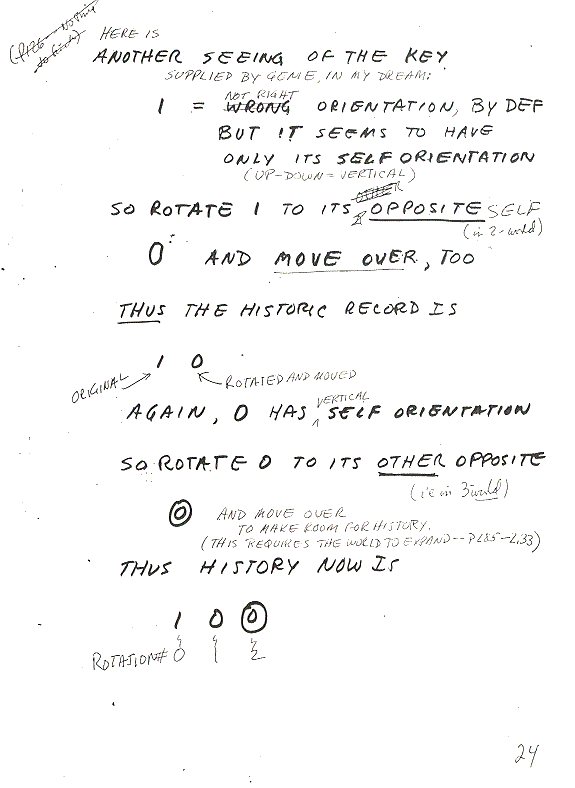 HERE IS
ANOTHER SEEING OF THE KEY
SUPPLIED BY GENIE, IN MY DREAM:
NOT RIGHT
1 = WRONG ORIENTATION, BY DEF
BUT IT SEEMS TO HAVE
ONLY ITS SELF ORIENTATION
(UP-DOWN = VERTICAL)
SO ROTATE 1 TO ITS OPPOSITE SELF
(in 2-world)
0 AND MOVE OVER, TOO
THUS THE HISTORIC RECORD IS
1 0
ORIGINAL ROTATED AND MOVED
VERTICAL
AGAIN, 0 HAS SELF ORIENTATION
SO ROTATE 0 TO ITS OTHER OPPOSITE
(i.e in 3 world)
0 AND MOVE OVER
TO MAKE ROOM FOR HISTORY.
(THIS REQUIRES THE WORLD TO EXPAND--P285-L33)
THUS HISTORY NOW IS
1 0 0
ROTATION# 0 1 2
24